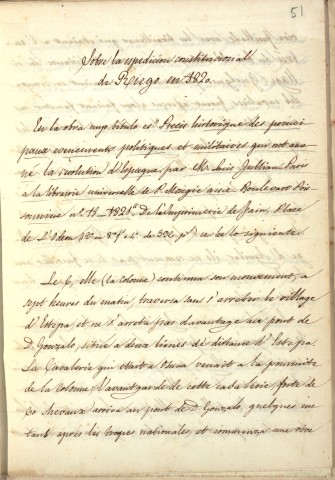 51
Sobre la espedicion constitucional
de Riego en 1820.
En la obra cuyo titulo es "Precis historique des princi
paux evenements politiques et militaires qui ont ame
né la revolution d'Espagne par M. Louis Jullian Paris
a la librerie universelle de P. Mongie ainé Boulevard Pois
sonniere nº. 18 — 1821" De l'imprimerie de Fain, Place
de L'Odeon se lee lo siguiente.
Le 6, elle (la colonne) continua son mouvement, a
sept heures du matin, traversa sans s'arreter le village
d'Estepa et ne s'arreta pas davantage au pont de
D. Gonzalo, situé a deux lieues de distance d'Estepa.
La Cavalerie qui etait a Osuna venait a la poursuite
de la colonne. L'avant garde de cette cavalerie, forte de
80 chevaux arriva au pont de D. Gonzalo, quelques ins
tants après les troupes nationales, et commenza une vive